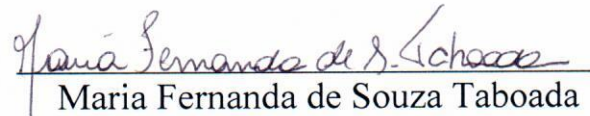 Maria Fernanda de S. Taboada
Maria Fernanda de Souza Taboada